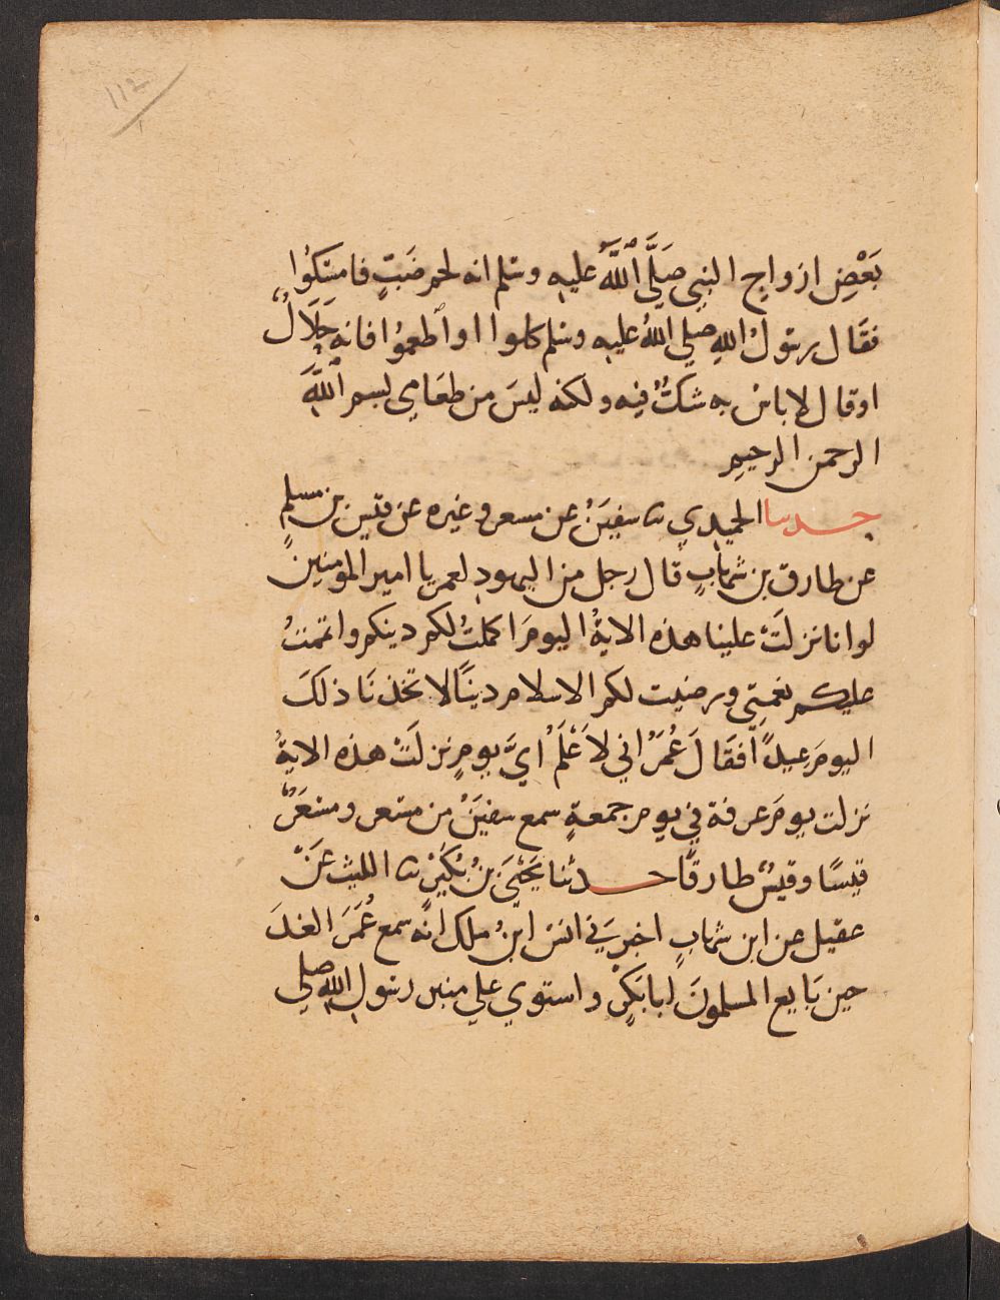 ١١٢
بَعْضِ ازواجِ النبي صَلَّى اللَّهُ عليهِ وسلم انه لحم ضَبٍّ فامسَكُوا
فقَال رسولُ اللهِ صلي اللهُ عليهِ وسلم كلوا او اطعمُوا فانه حَلَالٌ
اوقال لا باسَ به شكَّ فيه ولكنه ليسَ من طعَامي بسم اللَّهِ
الرحمن الرحيمِ
حدثنا الحميدي ثنا سفينُ عن مسعر وغيره عن قيس بن مسلمٍ
عن طارق بن شهابٍ قال رجل من اليهودِ لعمر يا امير المومنين
لو انا نزلَتْ علينا هذه الايةُ اليومَ اكملتُ لكم دينكم واتممتُ
عليكم نعمتِي ورضيت لكم الاسلام دينًا لاتخذنَا ذلكَ
اليومَ عيدًا فقَالَ عُمَرُ اني لاَعْلَمُ ايَّ يومٍ نزلَتْ هذه الايةُ
نزلت يومَ عرفة في يوم جمعةٍ سمع سفينُ من مسعر ومسعَرٌ
قيسًا وقيسٌ طارقًا حدثنا يَحْيَى بنُ بُكَيْرٍ ثنا الليث عَنْ
عقيل عن ابن شهابٍ اخبرَني انس ابنُ ملك انَّه سمع عُمَرَ الغدَ
حين بَايع المسلمونَ ابا بَكْرٍ واستوي علي منبر رسول اللهِ صلي